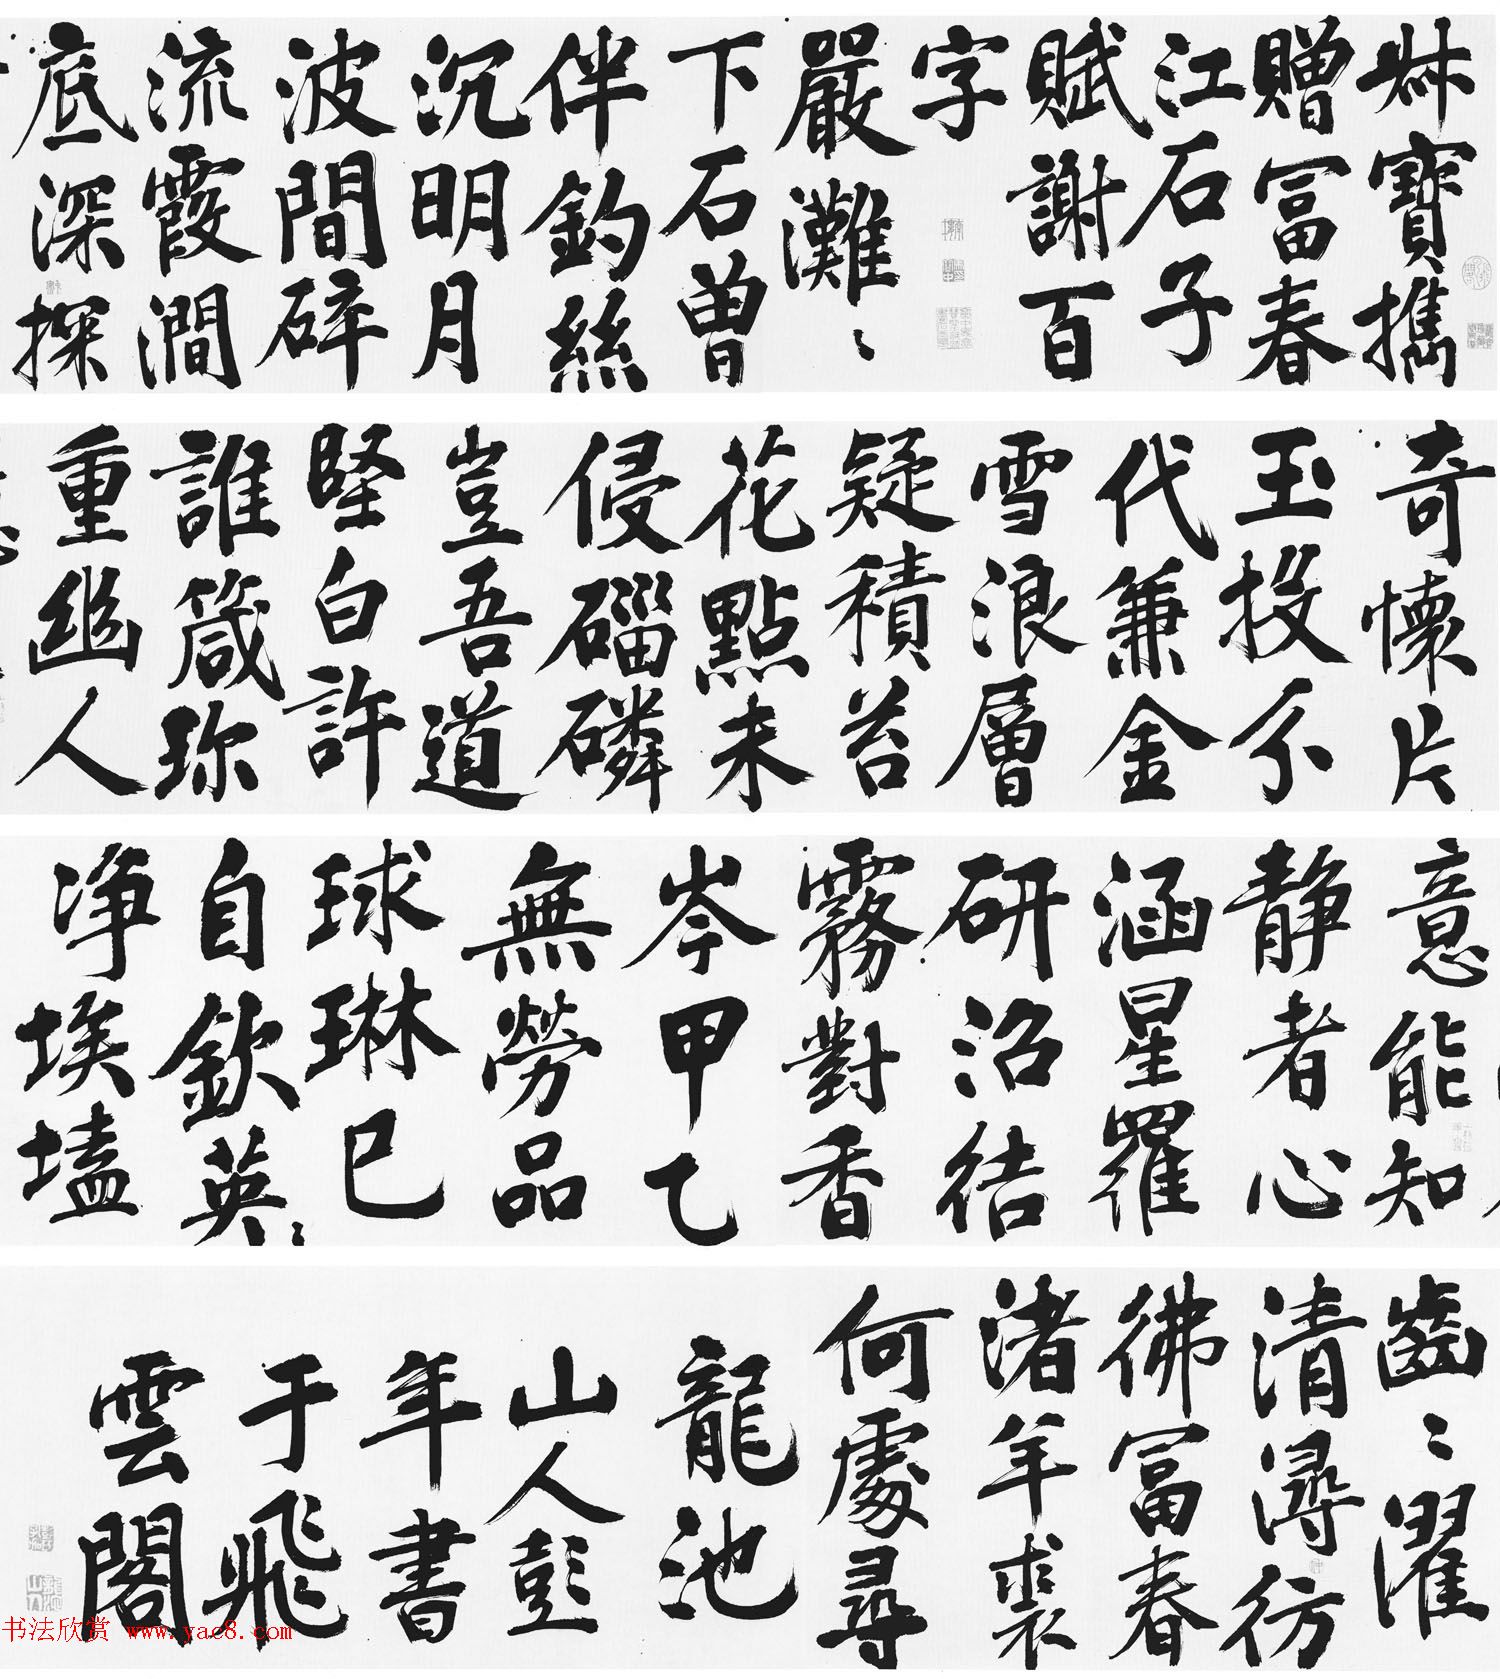 叔寶攜
贈富春
江石子
賦謝百
字
嚴灘〻
下石曽
伴釣絲
沉明月
波間碎
流霞澗
底深探
奇懷片
玉投不
代兼金
雪浪層
疑積苔
花點未
侵磂磷
豈吾道
堅白許
誰箴珎
重幽人
意能知
静者心
涵星羅
研沼结
霧對香
岑甲乙
無勞品
球琳已
自欽英〻
净埃壒
齒〻濯
清潯彷
彿富春
渚羊裘
何處尋
龍池
山人彭
年書
于飛
雲閣
书法欣赏 www.yac8.com